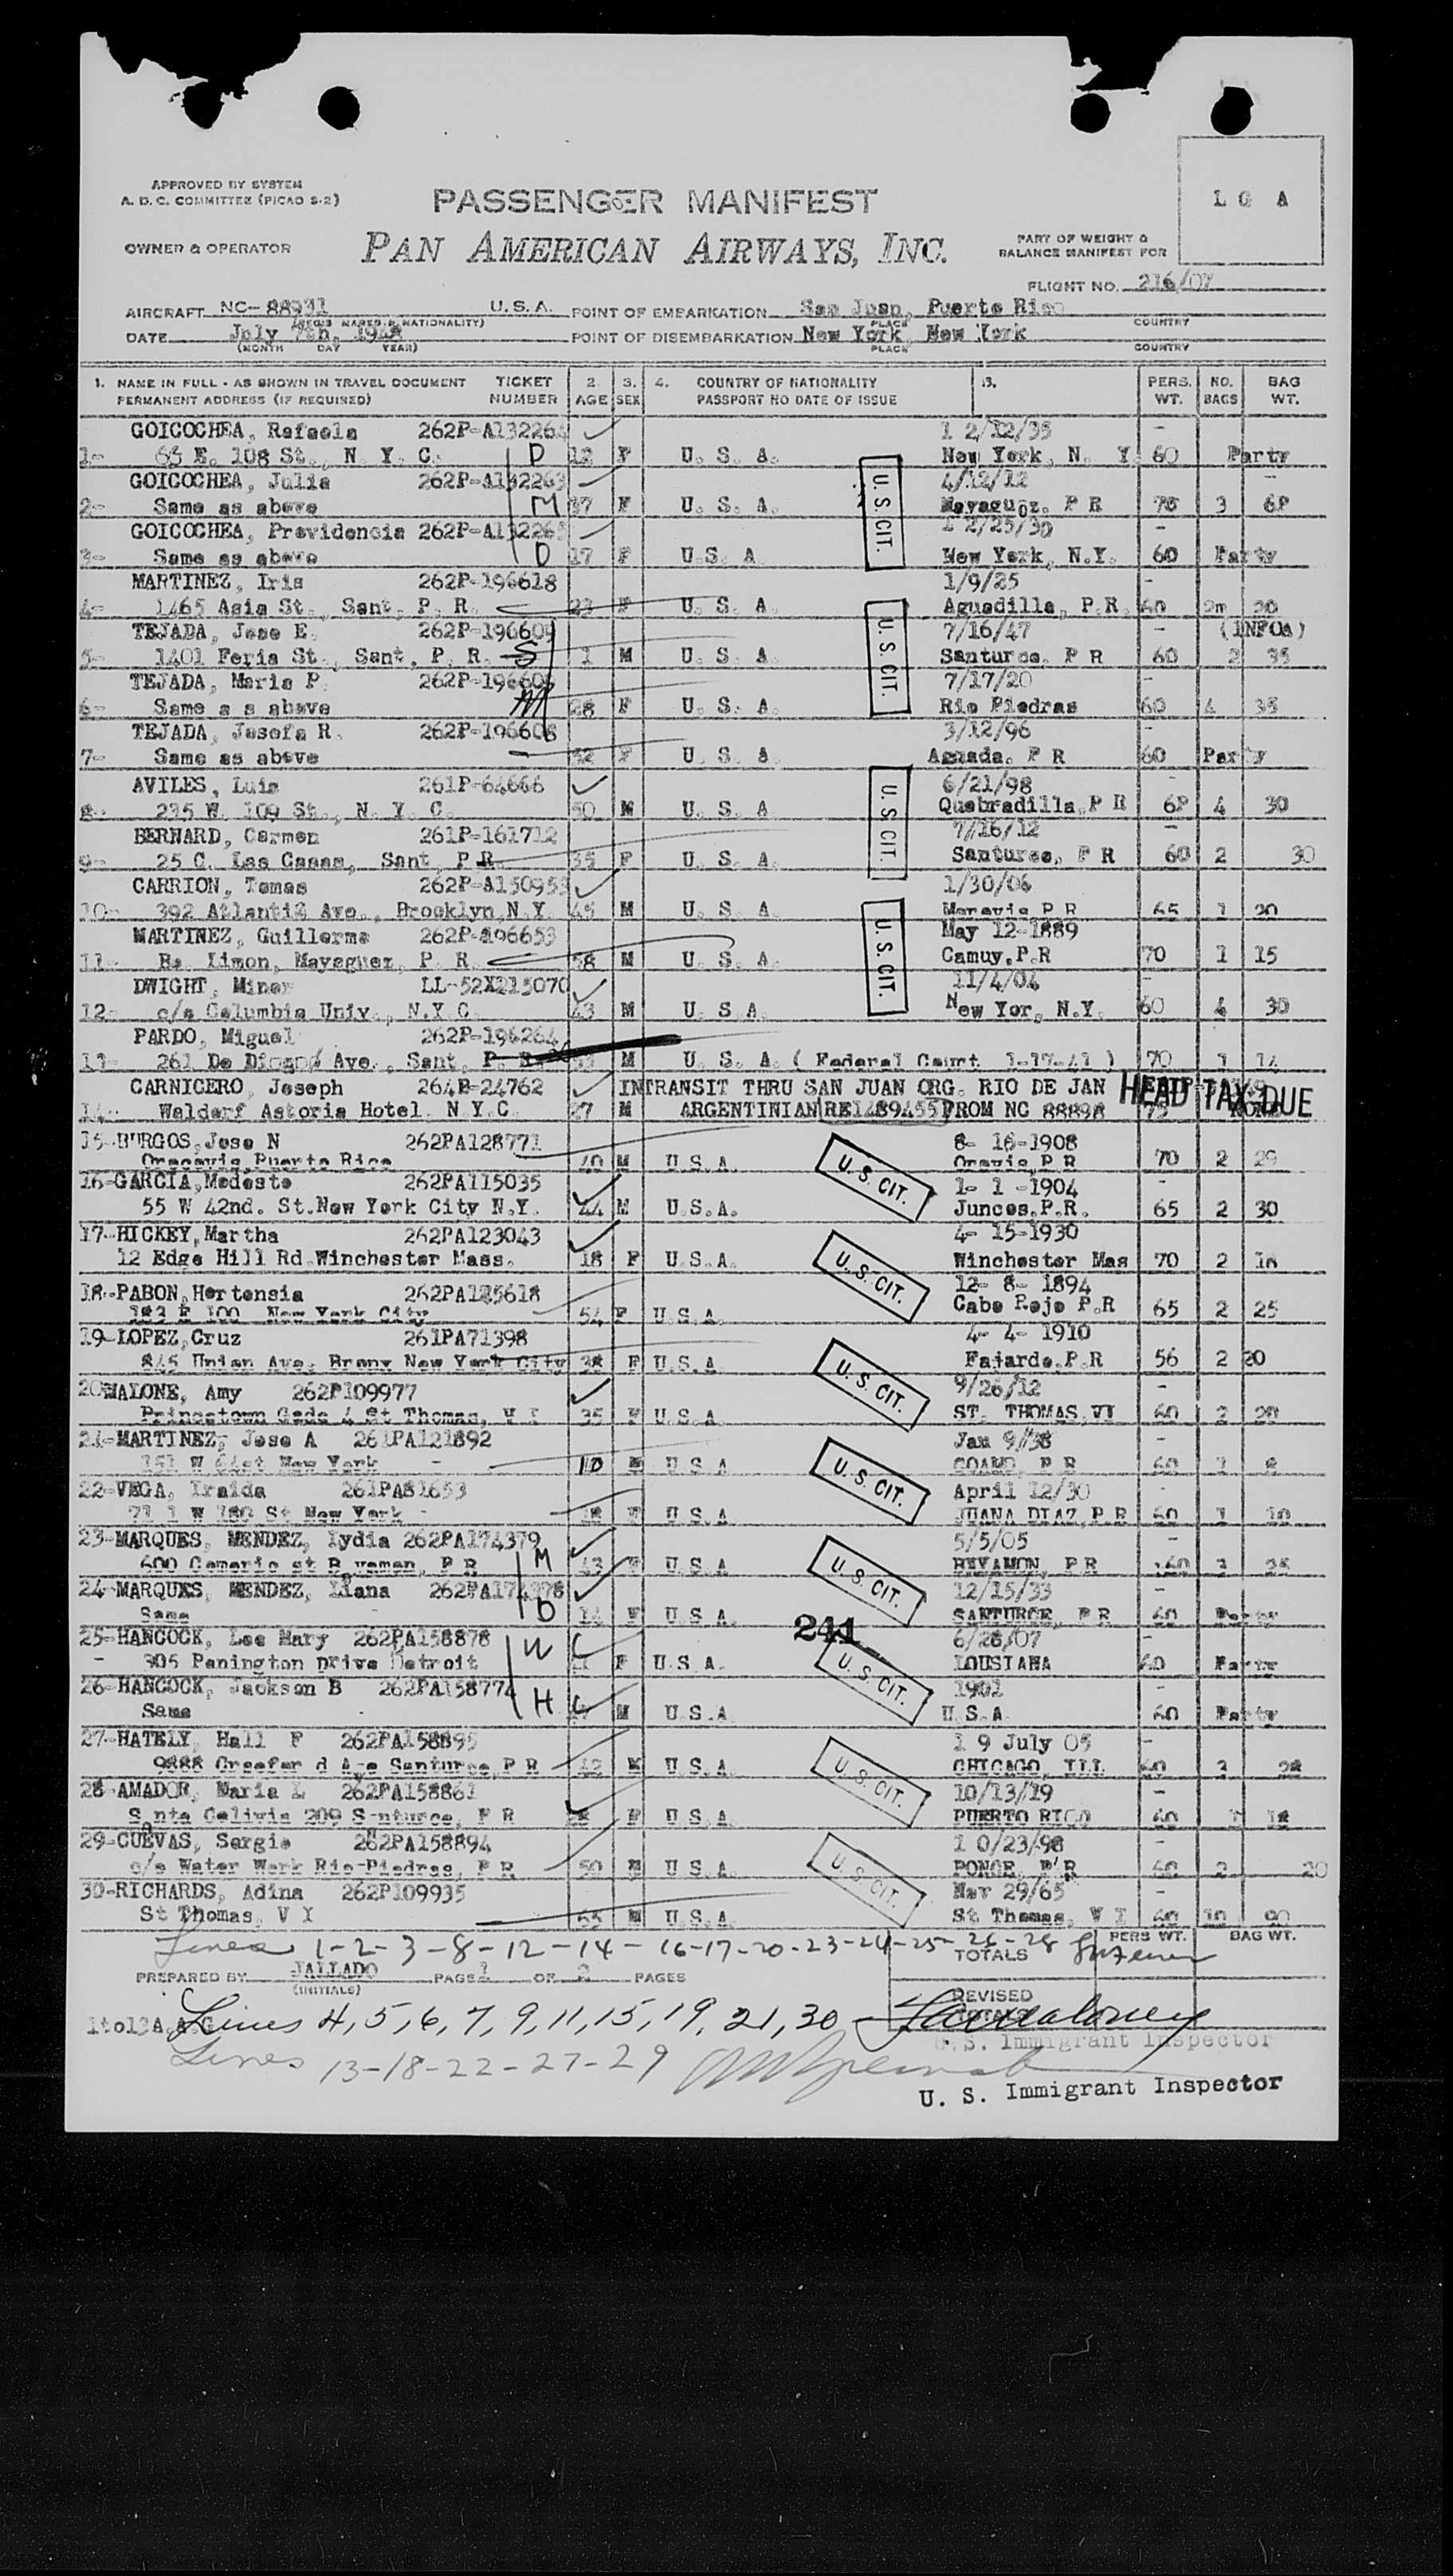 APPROVED BY SYSTEM
A. D. C. COMMITTEE (PICAO S-2)
PASSENGER MANIFEST
L G A
OWNER & OPERATOR
PAN AMERICAN AIRWAYS, INC.
PART OF WEIGHT &
BALANCE MANIFEST FOR
FLIGHT NO. 216/07
AIRCRAFT NC-88931 U.S.A. POINT OF EMBARKATION San Juan, Puerto Rico
(REGIS MARKS & NATIONALITY) PLACE COUNTRY
DATE July 7th, 1948 POINT OF DISEMBARKATION New York, New York
(MONTH DAY YEAR) PLACE COUNTRY
1. NAME IN FULL - AS SHOWN IN TRAVEL DOCUMENT TICKET 2. 3. 4. COUNTRY OF NATIONALITY PERS. NO. BAG
PERMANENT ADDRESS (IF REQUIRED) NUMBER AGE SEX PASSPORT NO DATE OF ISSUE WT. BAGS WT.
GOICOCHEA, Rafaela 262P-A132264 1 2/12/35 -
1- 65 E. 108 St., N. Y. C. D 12 F U. S. A. New York, N. Y. 60 Party
GOICOCHEA, Julia 262P-A132263 4/12/12 -
2- Same as above M 37 F U. S. A. Mayaguez. P R 3
U. S. CIT.
GOICOCHEA, Providencia 262P-A132265 1 2/25/30 -
3- Same as above D 17 F U.S. A. New York, N.Y. 60 Party
MARTINEZ, Iris 262P-196618 1/9/25 -
4- 1465 Asia St., Sant, P. R. 23 F U. S. A. Aguadilla, P.R. 60 20
TEJADA, Jose E. 262P-196609 7/16/47 -
5- 1401 Feria St., Sant, P. R. S 1 M U. S. A. Santurce. P R 60 2 35
U. S. CIT.
TEJADA, Maria P. 262P-196607 7/17/20 -
6- Same a s above M 28 F U. S. A. Rio Piedras 60 4 35
TEJADA, Josefa R. 262P-196608 3/12/96
7- Same as above 52 F U. S. A Aguada. P R 60 Party
AVILES, Luis 261P-64666 6/21/98 -
8- 235 W. 109 St., N. Y. C. 50 M U. S. A Quebradilla, P R 4 30
U. S. CIT.
BERNARD, Carmen 261P-161712 7/16/12 -
9- 25 C. Las Casas, Sant, P R. 35 F U. S. A. Santurce, P R 60 2 30
CARRION, Tomas 262P-A150953 1/30/06
10- 392 Atlantic Ave., Brooklyn, N.Y. 45 M U. S. A. P R 65 1 20
MARTINEZ, Guillermo 262P-A96653 May 12-1889
11- Bo Limon, Mayaguez, P. R. 58 M U. S. A. Camuy, P.R 70 1 15
U. S. CIT.
DWIGHT, Miner LL-52X215070 11/4/04 -
12- c/o Columbia Univ., N.Y.C. 43 M U. S A. New Yor, N.Y. 60 4 30
PARDO, Miguel 262P-196264
13- 261 De Diego Ave., Sant, P. R. M U. S. A. ( Federal Court 1-17-41 ) 70 1 14
CARNICERO, Joseph 264E-24762 INTRANSIT THRU SAN JUAN ORG. RIO DE JAN
HEAD TAX DUE
14- Waldorf Astoria Hotel. N.Y.C. 27 M ARGENTINIAN RE1489455 FROM NC 88898
15-BURGOS, Jose N 262PA128771 8- 16-1908
Orocovis, Puerto Rico 40 M U.S.A. Orovis, P R 70 2 29
U. S. CIT.
16-GARCIA, Modesto 262PA115035 1- 1 -1904 -
55 W 42nd. St. New York City N.Y. 44 M U.S.A. Juncos, P.R. 65 2 30
17-HICKEY, Martha 262PA123043 4- 15-1930
12 Edge Hill Rd. Winchester Mass. 18 F U.S.A. Winchester Mas 70 2 18
U. S. CIT.
18-PABON, Hortensia 262PA125618 12- 8- 1894
183 E 100 New York City 54 F U.S.A. Cabo Rojo P.R 65 2 25
19-LOPEZ, Cruz 261PA71398 4- 4- 1910
845 Union Ave. Bronx New York City 38 F U.S.A Fajardo, P.R 56 2 20
U. S. CIT.
20 MALONE, Amy 262P109977 9/26/12 -
Princetown Gade 4 St Thomas, V I 35 F U.S.A ST. THOMAS, VI 60 2 20
21-MARTINEZ, Jose A 261PA121892 Jan 9/38 -
151 W 61st New York - 10 M U S A COAMO, P R 60 1 8
U. S. CIT.
22-VEGA, Iraida 261PA81653 April 12/30 -
W 180 St New York - 18 F U.S.A JUANA DIAZ, P R 60 1 10
23-MARQUES, MENDEZ, Lydia 262PA174379 5/5/05 -
600 Comerio st Bayamon, P R M 43 F U.S.A BEYAMON, P R 60 3 25
U. S. CIT.
24-MARQUES, MENDEZ, Liana 262PA174378 12/15/33 -
Same D 14 F U.S.A. SANTURCE, P R 60 Party
241
25-HANCOCK, Lee Mary 262PA158878 6/28/07 -
- 305 Penington Drive Detroit W F U.S.A. LOUSIANA 60 Party
U. S. CIT.
26-HANCOCK, Jackson B 262PA158774 1901 -
Same H M U.S.A U.S.A. 60 Party
27-HATELY, Hall F 262PA158895 1 9 July 05 -
Santurce, P R 42 M U.S.A CHICAGO, ILL 60 3 28
U. S. CIT.
28-AMADOR, Maria L 262PA158861 10/13/19 -
Santa Calivia 209 Santurce, P R 28 F U.S.A. PUERTO RICO 60 1 18
29-CUEVAS, Sergio 262PA158894 1 0/23/98 -
c/o Water Work Rio-Piedras, P R 50 M U.S.A. PONCE, P R 60 2 20
U. S. CIT.
30-RICHARDS, Adina 262P109935 Mar 29/65 -
St Thomas, V I 65 M U.S.A. St Thomas, V I 60 10 90
Lines 1-2-3-8-12-14-16-17-20-23-24-25-26-28
TOTALS PERS WT. BAG WT.
PREPARED BY JALLADO PAGE 1 OF 2 PAGES
(INITIALS)
REVISED
1to13A.A.G.
Lines 4, 5, 6, 7, 9, 11, 15, 19, 21, 30 -
U.S. Immigrant Inspector
Lines 13-18-22-27-29
U. S. Immigrant Inspector